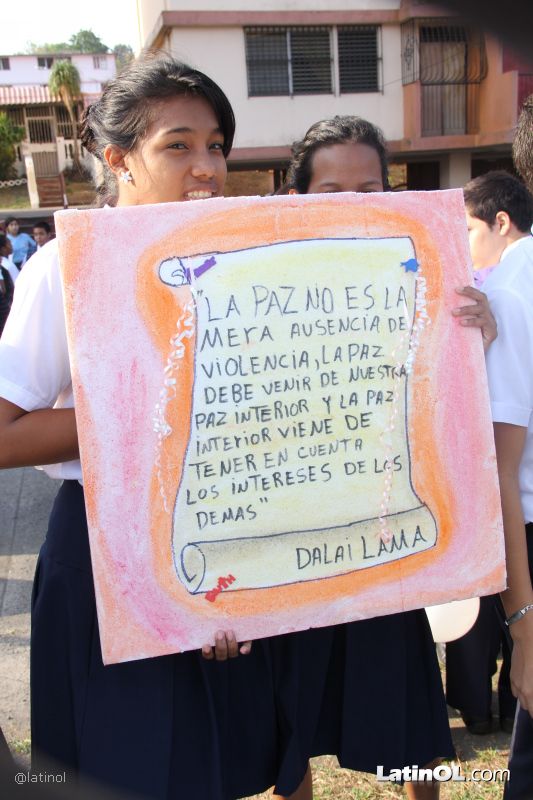 "LA PAZ NO ES LA
MERA AUSENCIA DE
VIOLENCIA, LA PAZ
DEBE VENIR DE NUESTRA
PAZ INTERIOR Y LA PAZ
INTERIOR VIENE DE
TENER EN CUENTA
LOS INTERESES DE LOS
DEMAS"
DALAI LAMA
@latinol
LatinOL.com